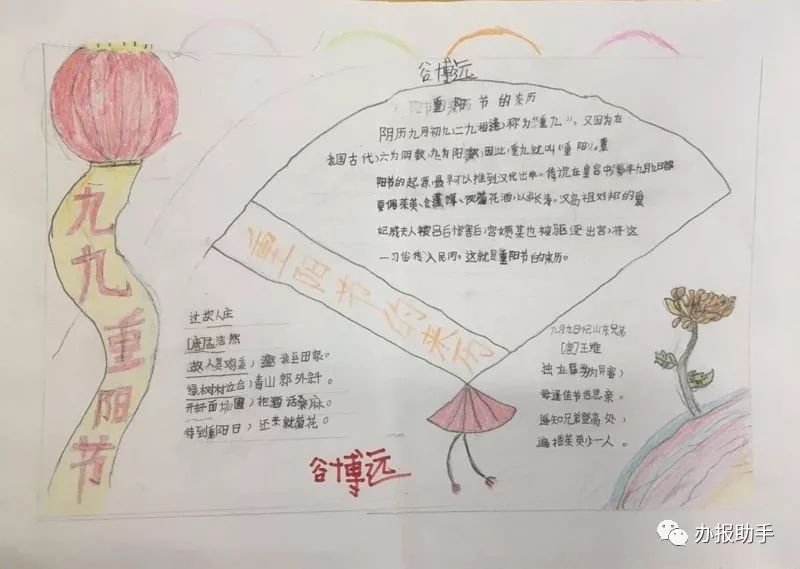 谷博远
重阳节的来历
阴历九月初九,二九相逢,称为"重九"。又因为在
我国古代,六为阴数,九为阳数,因此,重九就叫"重阳"。重
阳节的起源,最早可以推到汉代出年。传说在皇宫中,每年九月九日都
要佩茱萸、食蓬饵、饮菊花酒,以求长寿。汉高祖刘邦的爱
妃戚夫人被吕后惨害后,宫女某也被驱逐出宫,将这
一习俗传入民间。这就是重阳节的来历。
重阳节的来历
九九重阳节
过故人庄
[唐]孟浩然
故人具鸡黍,邀我至田家。
绿树村边合,青山郭外斜。
开轩面场圃,把酒话桑麻。
待到重阳日,还来就菊花。
谷博远
九月九日忆山东兄弟
[唐]王维
独在异乡为异客,
每逢佳节倍思亲。
遥知兄弟登高处,
遍插茱萸少一人。
办报助手